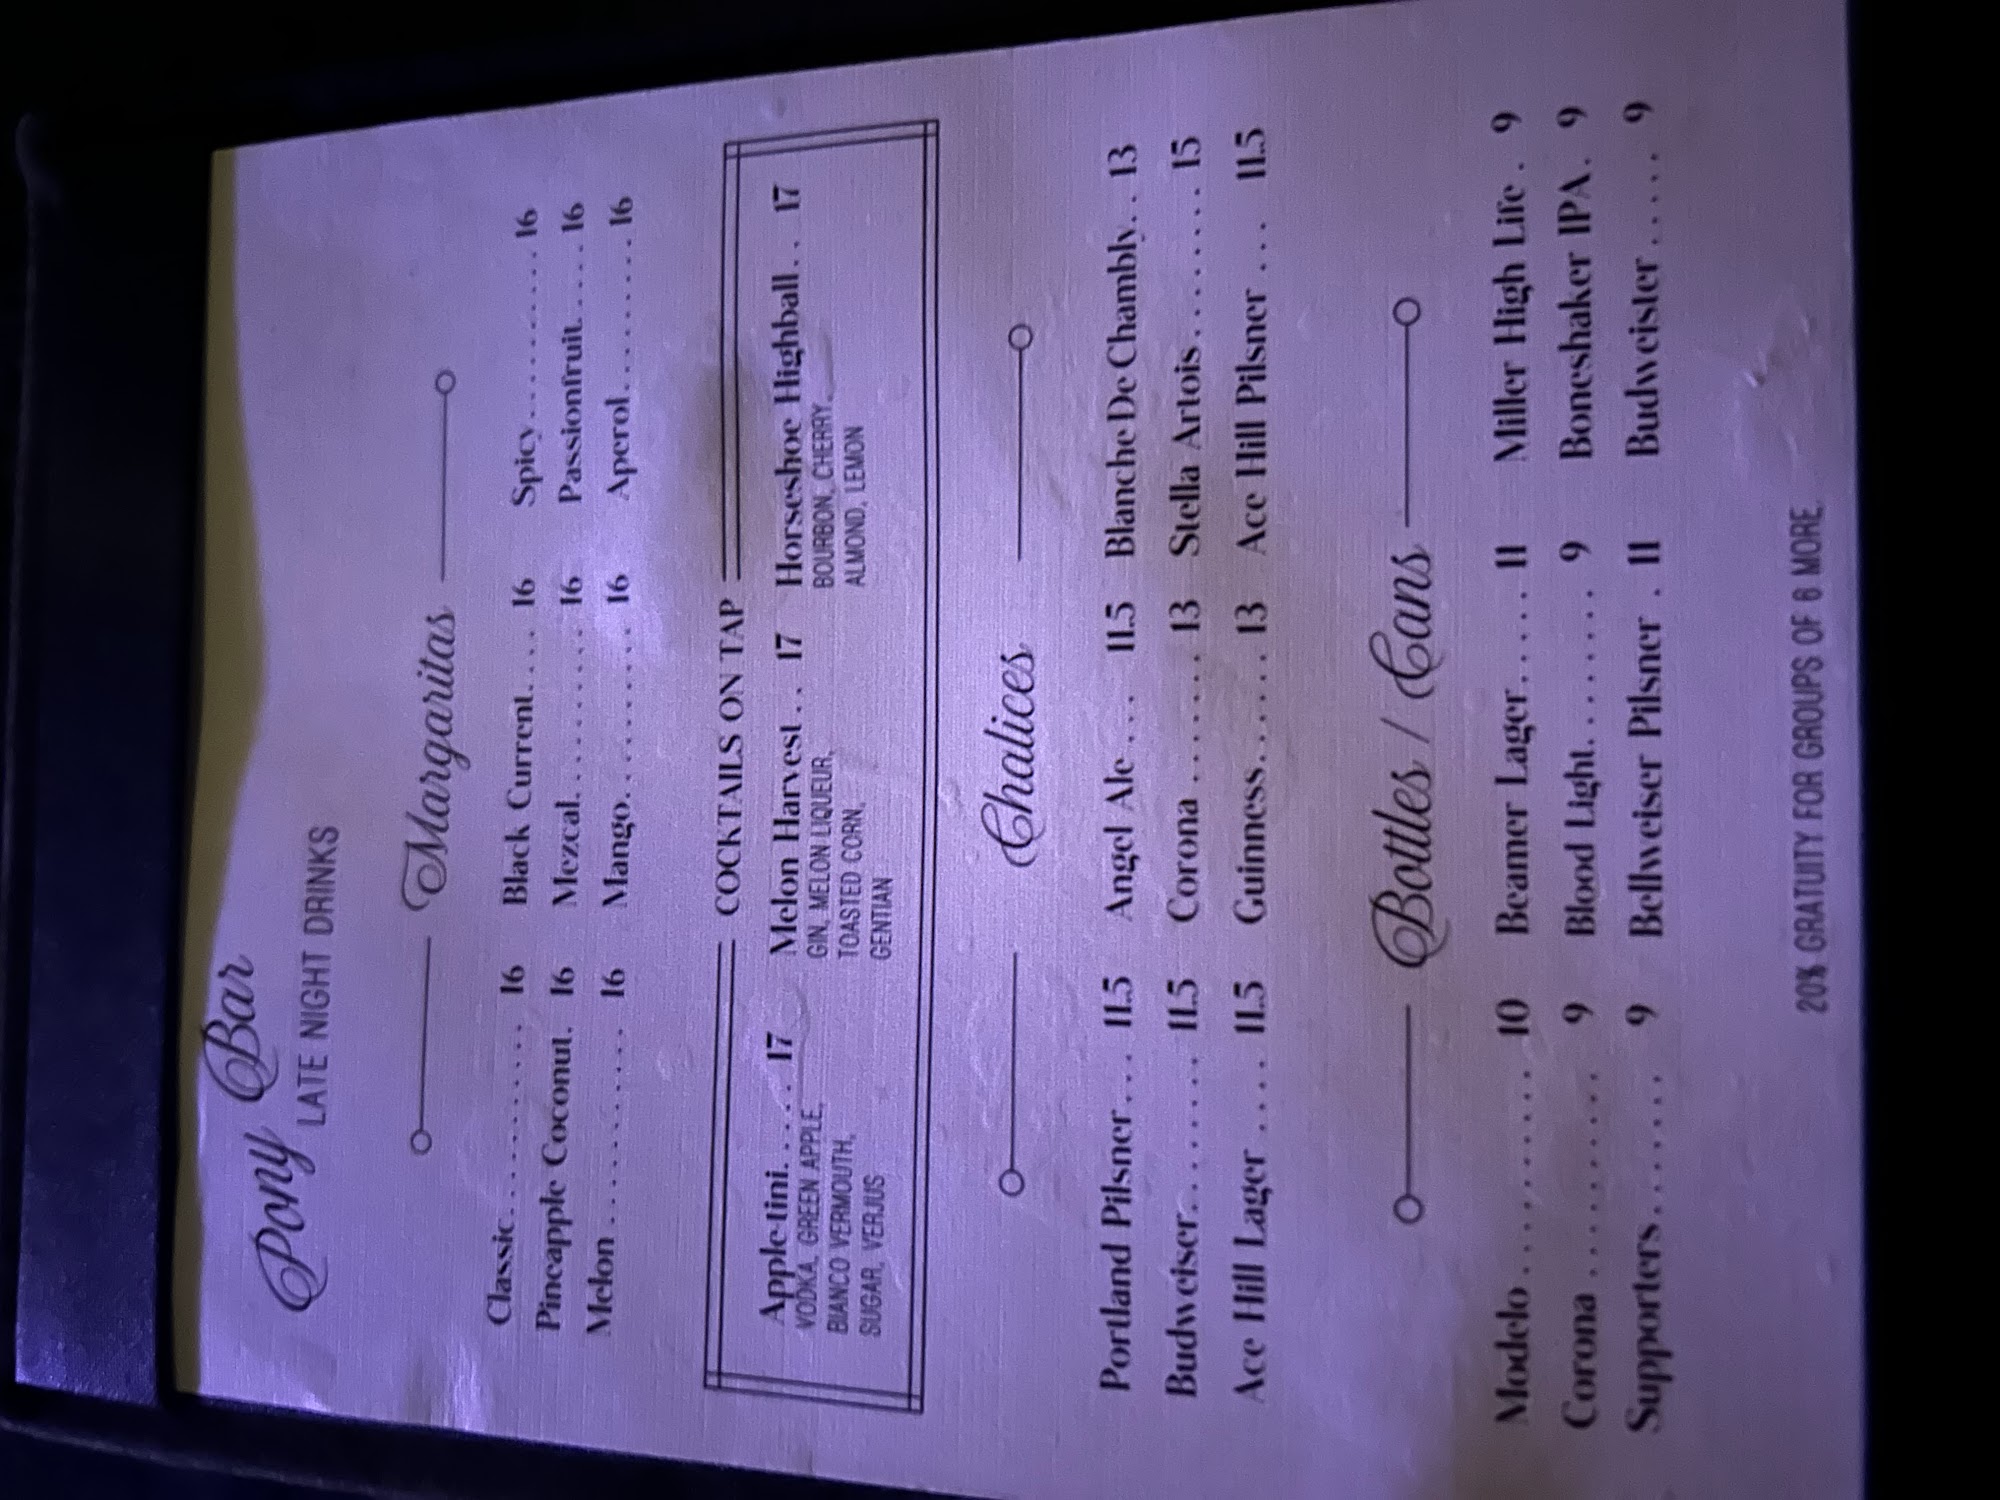 Pony Bar
LATE NIGHT DRINKS
Margaritas
Classic.......... 16 Black Current.... 16 Spicy.......... 16
Pineapple Coconut. 16 Mezcal......... 16 Passionfruit..... 16
Melon.......... 16 Mango......... 16 Aperol......... 16
COCKTAILS ON TAP
Apple-tini..... 17 Melon Harvest.. 17 Horseshoe Highball... 17
VODKA, GREEN APPLE, GIN, MELON LIQUEUR, BOURBON, CHERRY,
BIANCO VERMOUTH, TOASTED CORN, ALMOND, LEMON
SUGAR, VERJUS GENTIAN
Chalices
Portland Pilsner... 11.5 Angel Ale.... 11.5 Blanche De Chambly.. 13
Budweiser........ 11.5 Corona ....... 13 Stella Artois........ 15
Ace Hill Lager .... 11.5 Guinness...... 13 Ace Hill Pilsner ... 11.5
Bottles / Cans
Modelo........... 10 Beamer Lager...... 11 Miller High Life . 9
Corona .......... 9 Blood Light....... 9 Boneshaker IPA. 9
Supporters....... 9 Bellweiser Pilsner . 11 Budweister..... 9
20% GRATUITY FOR GROUPS OF 6 MORE.